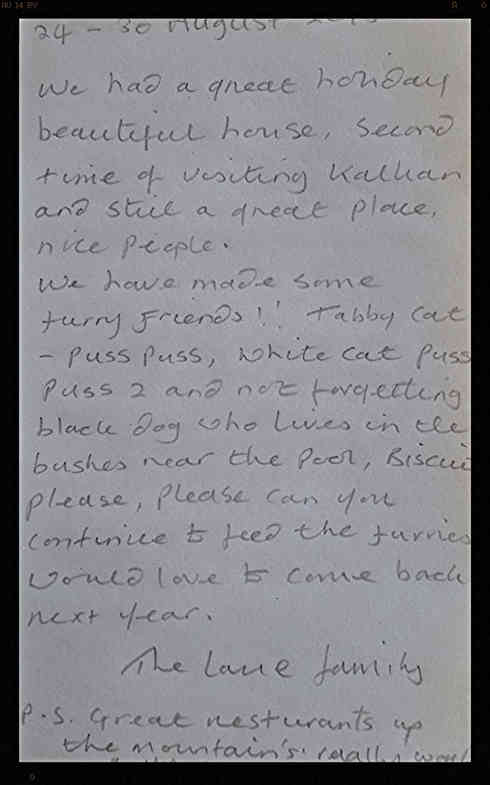 24 - 30 August
We had a great holiday
beautiful house, second
time of visiting Kalkan
and still a great place,
nice people.
We have made some
furry friends!! Tabby cat
- puss puss, white cat puss
puss 2 and not forgetting
black dog who lives in the
bushes near the pool, Biscui
please, please can you
continue to feed the furries
would love to come back
next year.
The Lane family
P.S. Great resturants up
the mountain's. really